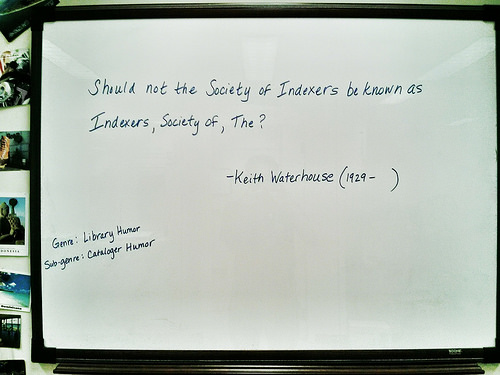 Should not the Society of Indexers be known as
Indexers, Society of, The?
-Keith Waterhouse (1929- )
Genre: Library Humor
Sub-genre: Cataloger Humor